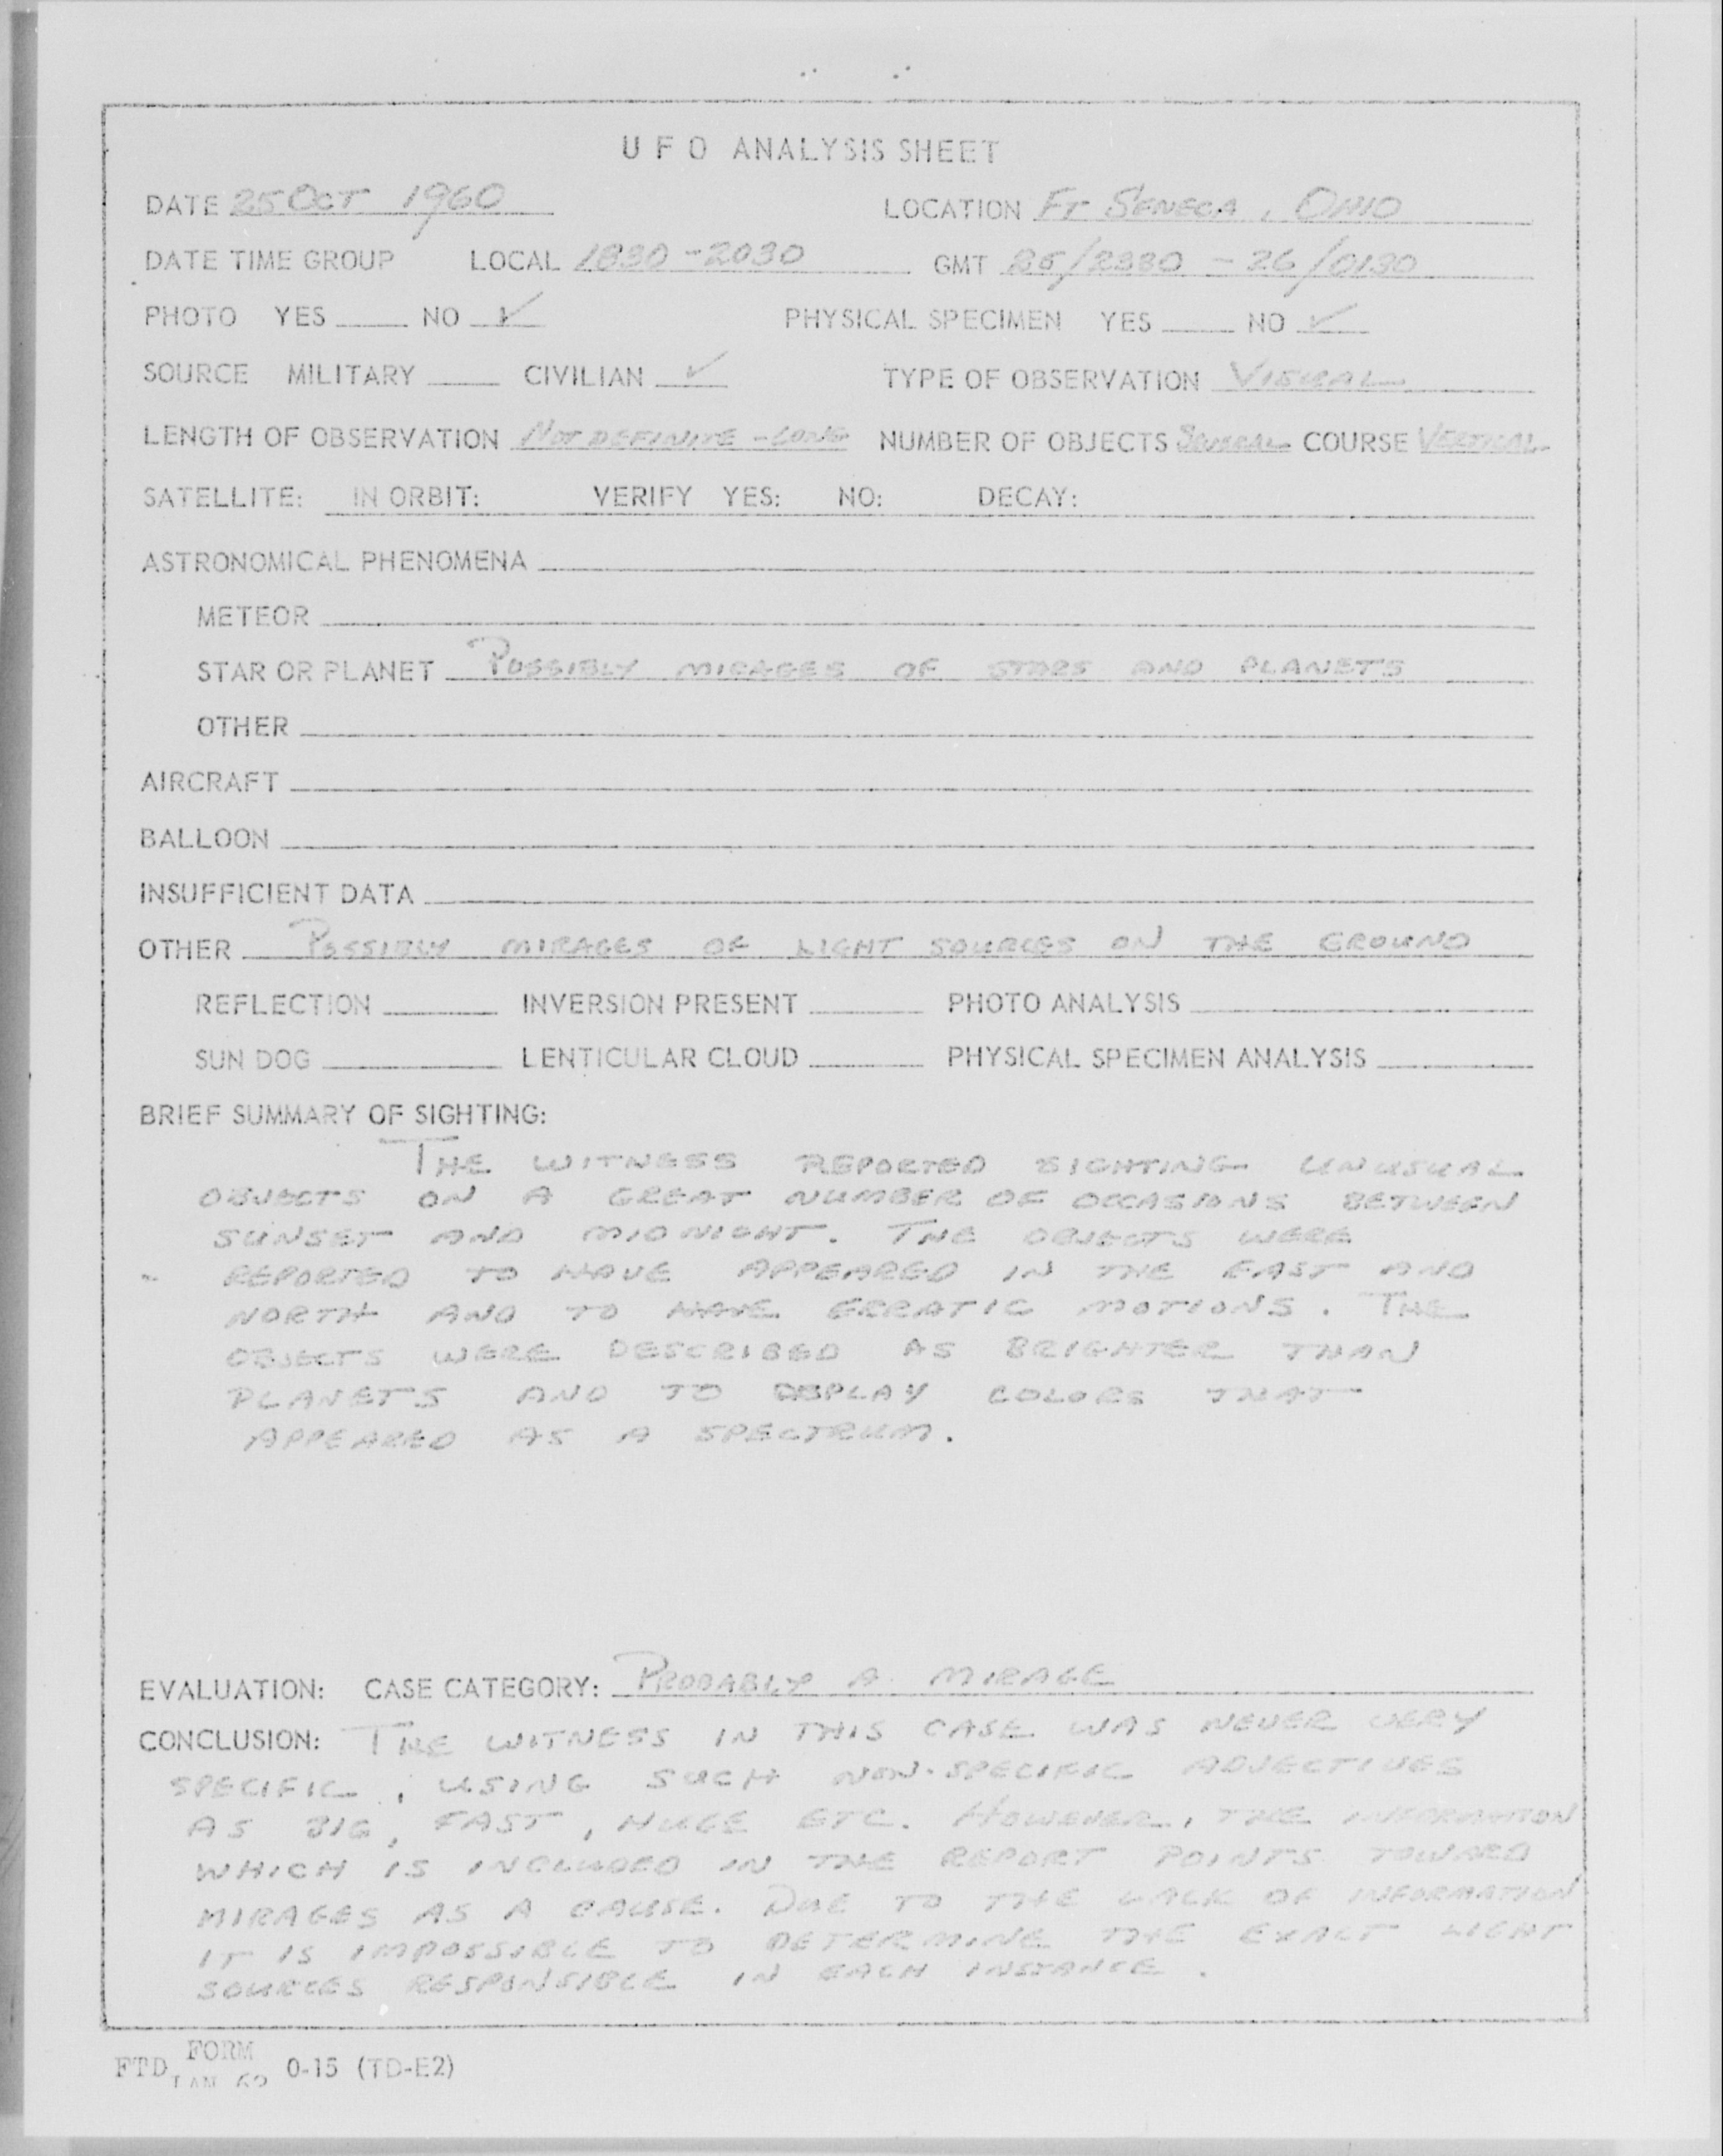 U F O ANALYSIS SHEET
DATE 25 OCT 1960 LOCATION FT SENECA, OHIO
DATE TIME GROUP LOCAL 1830-2030 GMT 25/2330 - 26/0130
PHOTO YES NO ✓ PHYSICAL SPECIMEN YES NO ✓
SOURCE MILITARY CIVILIAN ✓ TYPE OF OBSERVATION VISUAL
LENGTH OF OBSERVATION NOT DEFINITE - LONG NUMBER OF OBJECTS SEVERAL COURSE VERTICAL
SATELLITE: IN ORBIT: VERIFY YES: NO: DECAY:
ASTRONOMICAL PHENOMENA
METEOR
STAR OR PLANET POSSIBLY MIRAGES OF STARS AND PLANETS
OTHER
AIRCRAFT
BALLOON
INSUFFICIENT DATA
OTHER POSSIBLY MIRAGES OF LIGHT SOURCES ON THE GROUND
REFLECTION INVERSION PRESENT PHOTO ANALYSIS
SUN DOG LENTICULAR CLOUD PHYSICAL SPECIMEN ANALYSIS
BRIEF SUMMARY OF SIGHTING:
THE WITNESS REPORTED SIGHTING UNUSUAL
OBJECTS ON A GREAT NUMBER OF OCCASIONS BETWEEN
SUNSET AND MIDNIGHT. THE OBJECTS WERE
REPORTED TO HAVE APPEARED IN THE EAST AND
NORTH AND TO HAVE ERRATIC MOTIONS. THE
OBJECTS WERE DESCRIBED AS BRIGHTER THAN
PLANETS AND TO DISPLAY COLORS THAT
APPEARED AS A SPECTRUM.
EVALUATION: CASE CATEGORY: PROBABLY A MIRAGE
CONCLUSION: THE WITNESS IN THIS CASE WAS NEVER VERY
SPECIFIC, USING SUCH NON-SPECIFIC ADJECTIVES
AS BIG, FAST, HUGE ETC. HOWEVER, THE INFORMATION
WHICH IS INCLUDED IN THE REPORT POINTS TOWARD
MIRAGES AS A CAUSE. DUE TO THE LACK OF INFORMATION
IT IS IMPOSSIBLE TO DETERMINE THE EXACT LIGHT
SOURCES RESPONSIBLE IN EACH INSTANCE.
FTD FORM 0-15 (TD-E2)
JAN 62